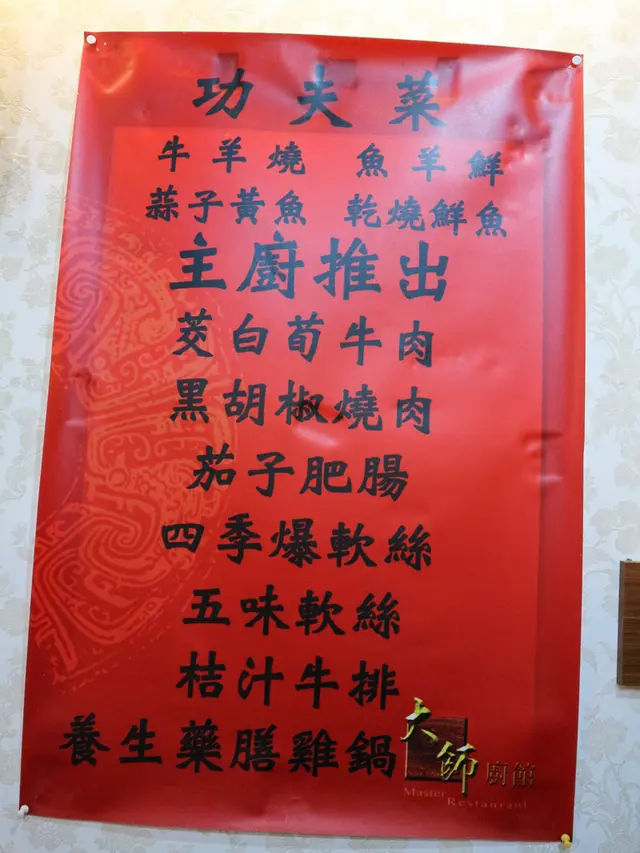 功夫菜
牛羊燒 魚羊鮮
蒜子黃魚 乾燒鮮魚
主廚推出
茭白荀牛肉
黑胡椒燒肉
茄子肥腸
四季爆軟絲
五味軟絲
桔汁牛排
養生藥膳雞鍋
大師廚館
Master
Restaurant